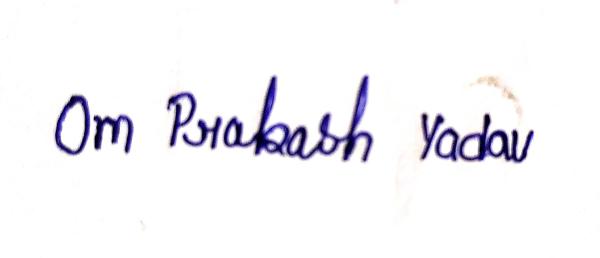 Om Prakash Yadav